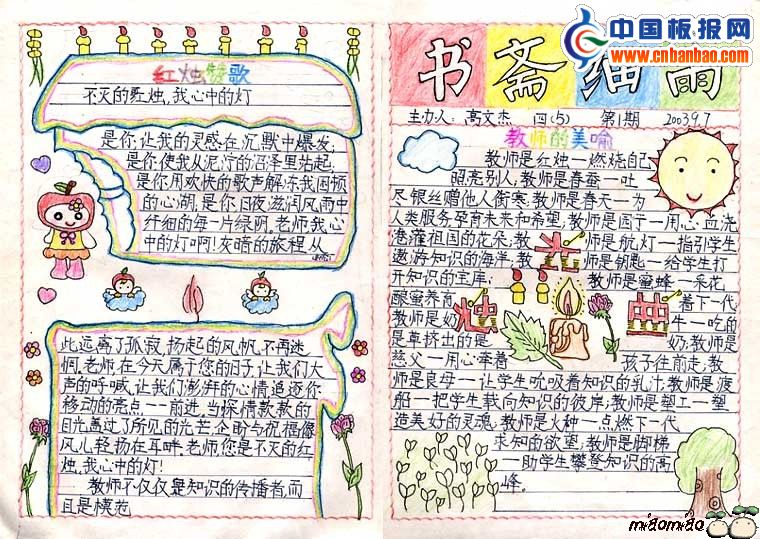 红烛颂歌
不灭的红烛,我心中的灯
是你,让我的灵感在沉默中爆发;
是你使我从泥泞的沼泽里站起;
是你用欢快的歌声解冻我困顿
的心湖,是你日夜滋润风雨中
纤细的每一片绿阴,老师,我心
中的灯啊!灰暗的旅程,从
此远离了孤寂,扬起的风帆,不再迷
惘,老师,在今天属于您的日子,让我们大
声的呼喊,让我们澎拜的心情追逐你
移动的亮点——前进,当深情款款的
目光,高过了所见的光芒,企盼与祝福像
风儿,轻扬在耳畔,老师,您是不灭的红
烛,我心中的灯!
教师不仅仅是知识的传播者,而
且是模范
中国板报网
www.cnbanbao.com
书斋细雨
主办人:高文杰 四(5) 第1期 2003.9.7
教师的美喻
教师是红烛一燃烧自己
照亮别人;教师是春蚕一吐
尽银丝赠他人御寒;教师是春天一为
人类服务,孕育未来和希望;教师是园丁一用心血浇
灌祖国的花朵;教师是航灯一指引学生
遨游知识的海洋;教师是钥匙一给学生打
开知识的宝库;教师是蜜蜂一采花
酿蜜养育着下代
教师是奶牛一吃的
是草挤出的是奶;教师是
慈父一用心牵着孩子往前走;教
师是良母一让学生吮吸着知识的乳汁;教师是渡
船一把学生载向知识的彼岸;教师是塑工一塑
造美好的灵魂;教师是火种一点燃下一代
求知的欲望;教师是脚梯
一助学生攀登知识的高
峰。
烛
miaomiao